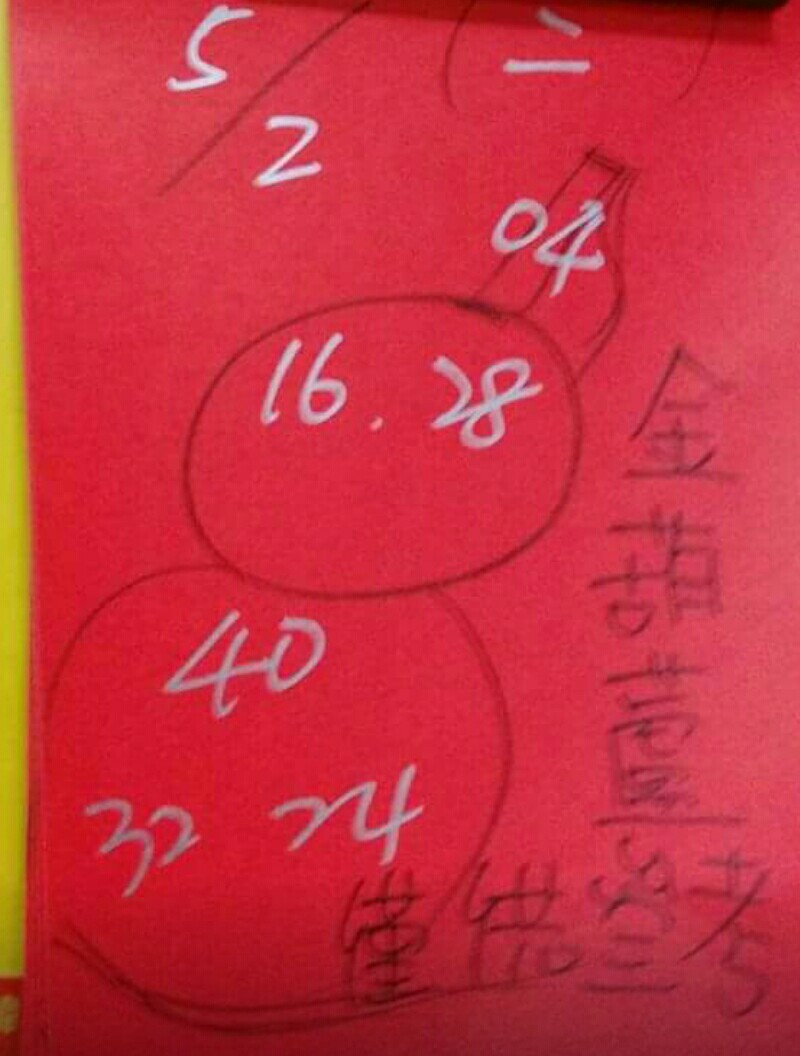 5/2 (二)
04
16.28
40
32 24
金
僅供參考